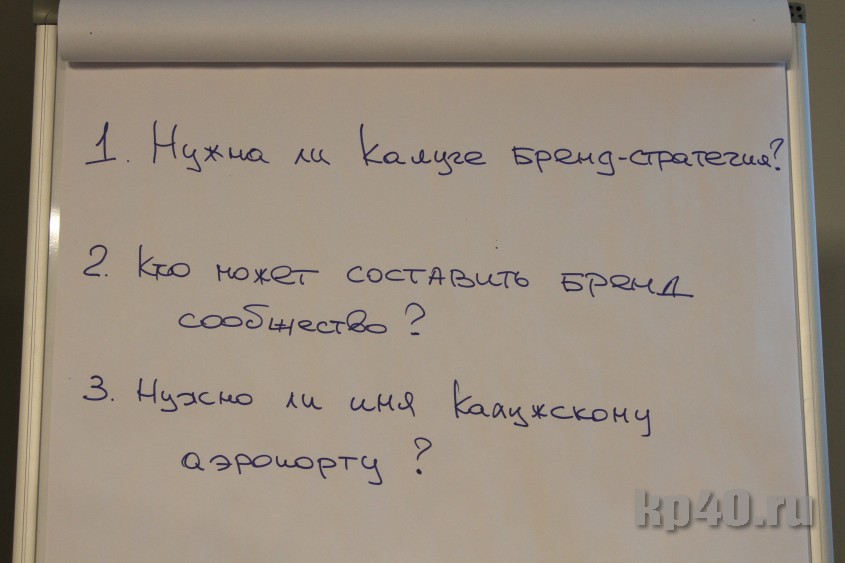 1. Нужна ли Калуге бренд-стратегия?
2. Кто может составить бренд
сообщество?
3. Нужно ли имя Калужскому
аэропорту?
kp40.ru